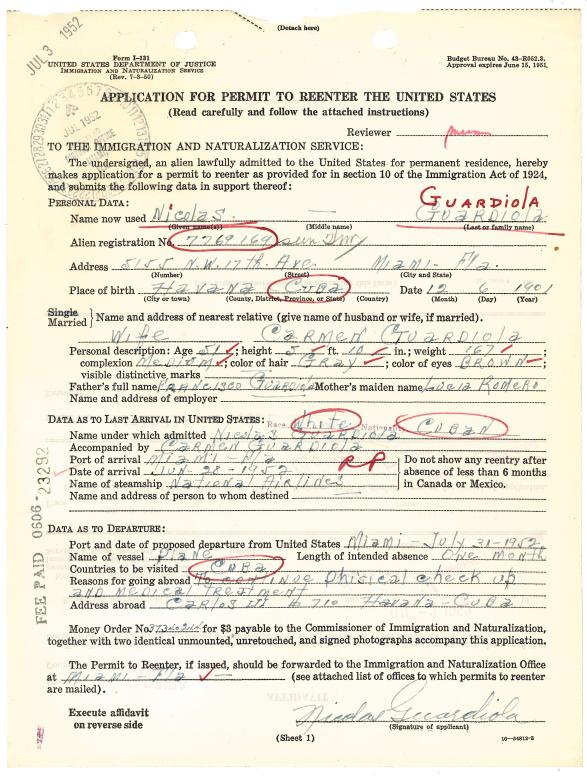 (Detach here)
JUL 3 1952
Form I-131
UNITED STATES DEPARTMENT OF JUSTICE
IMMIGRATION AND NATURALIZATION SERVICE
(Rev. 7-3-50)
Budget Bureau No. 43-R052.3.
Approval expires June 15, 1951.
APPLICATION FOR PERMIT TO REENTER THE UNITED STATES
(Read carefully and follow the attached instructions)
JUL 1952
Reviewer
TO THE IMMIGRATION AND NATURALIZATION SERVICE:
The undersigned, an alien lawfully admitted to the United States for permanent residence, hereby
makes application for a permit to reenter as provided for in section 10 of the Immigration Act of 1924,
and submits the following data in support thereof:
GUARDIOLA
PERSONAL DATA:
Name now used Nicolas — GUARDIOLA
(Given name(s)) (Middle name) (Last or family name)
Alien registration No. 7769169
Address 5155 N.W. 17th Ave Miami - Fla.
(Number) (Street) (City and State)
Place of birth Havana CUBA Date 12 6 1901
(City or town) (County, District, Province, or State) (Country) (Month) (Day) (Year)
Single
Married } Name and address of nearest relative (give name of husband or wife, if married).
Wife CARMEN GUARDIOLA
Personal description: Age 51; height 5 ft. 10 in.; weight 167;
complexion MEDIUM; color of hair GRAY; color of eyes BROWN
visible distinctive marks
Father's full name FRANCISCO GUARDIOLA Mother's maiden name Lucia Romero
Name and address of employer
DATA AS TO LAST ARRIVAL IN UNITED STATES: Race White Nationality CUBAN
Name under which admitted Nicolas GUARDIOLA
Accompanied by CARMEN GUARDIOLA
Port of arrival MIAMI - Fla
Date of arrival JUN-28-1952
Name of steamship National Airlines
Name and address of person to whom destined
RP
Do not show any reentry after
absence of less than 6 months
in Canada or Mexico.
FEE PAID 0606-23292
DATA AS TO DEPARTURE:
Port and date of proposed departure from United States Miami - July 31-1952
Name of vessel Plane Length of intended absence One month
Countries to be visited CUBA
Reasons for going abroad To continue Phisical check up
AND MEDICAL TREATMENT
Address abroad CARLOS III # 710 Havana-CUBA
Money Order No. for $3 payable to the Commissioner of Immigration and Naturalization,
together with two identical unmounted, unretouched, and signed photographs accompany this application.
The Permit to Reenter, if issued, should be forwarded to the Immigration and Naturalization Office
at Miami - Fla (see attached list of offices to which permits to reenter
are mailed).
Execute affidavit
on reverse side
Nicolas Guardiola
(Signature of applicant)
(Sheet 1)
16-54812-3